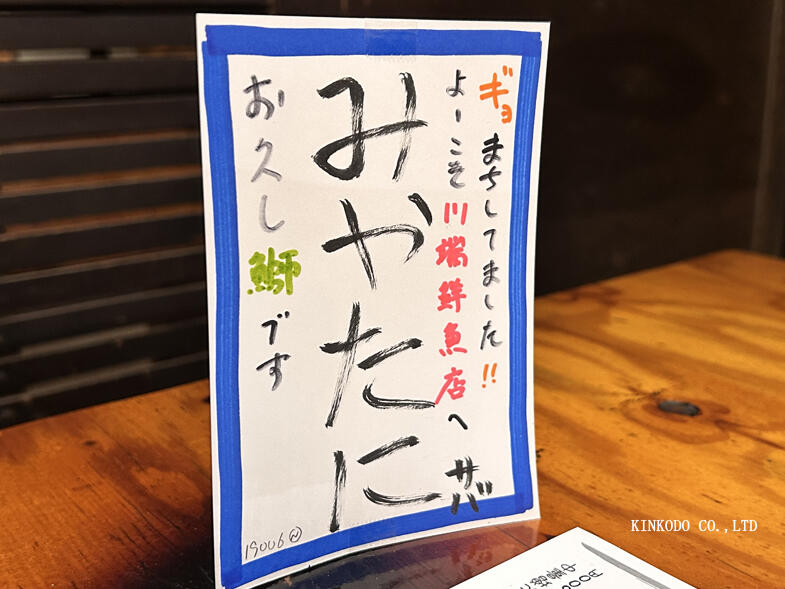 ギョまちしてました!!
よーこそ川端鮮魚店へ
サバ
みやたに
お久し鰤です
KINKODO CO.,LTD